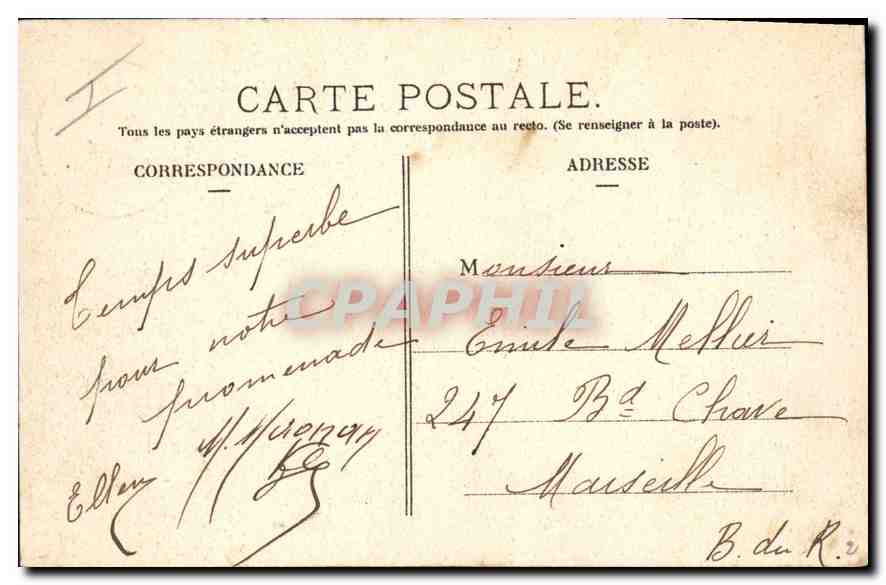 I
CARTE POSTALE.
Tous les pays étrangers n'acceptent pas la correspondance au recto. (Se renseigner à la poste).
CORRESPONDANCE
Temps superbe
pour notre
promenade
Ellen
ADRESSE
Monsieur
Emile Mellier
247 Bd Chave
Marseille
B. du R.
2
CPAPHIL